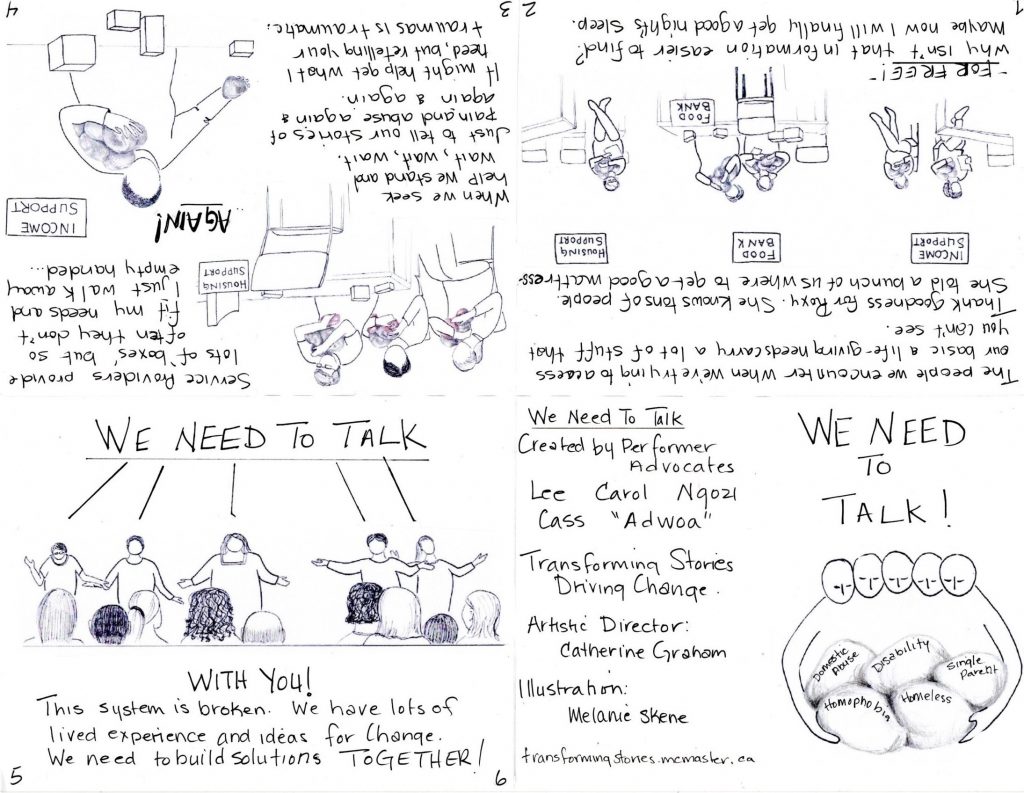 WE NEED
TO
TALK!
Domestic
Abuse
Disability
Single
Parent
Homophobia
Homeless
The people we encounter when we're trying to access
our basic & life-giving needs carry a lot of stuff that
you can't see.
Thank goodness for Roxy. She knows tons of people.
She told a bunch of us where to get a good mattress-
INCOME
SUPPORT
FOOD
BANK
HOUSING
SUPPORT
FOOD
BANK
-FOR FREE!
Why isn't that information easier to find?
Maybe now I will finally get a good night's sleep.
1
2
When we seek
help we stand and
wait, wait, wait.
Just to tell our stories of
pain and abuse again &
again & again.
It might help get what I
need, but retelling your
traumas is traumatic.
HOUSING
SUPPORT
3
Service Providers provide
lots of 'boxes' but so
often they don't
fit my needs and
I just walk away
empty handed...
...AGAIN!
INCOME
SUPPORT
4
WE NEED TO TALK
WITH YOU!
This system is broken. We have lots of
lived experience and ideas for Change.
We need to build solutions TOGETHER!
5
6
We Need To Talk
Created by Performer
Advocates
Lee Carol Ngozi
Cass "Adwoa"
Transforming Stories
Driving Change.
Artistic Director:
Catherine Graham
Illustration:
Melanie Skene
transformingstories.mcmaster.ca